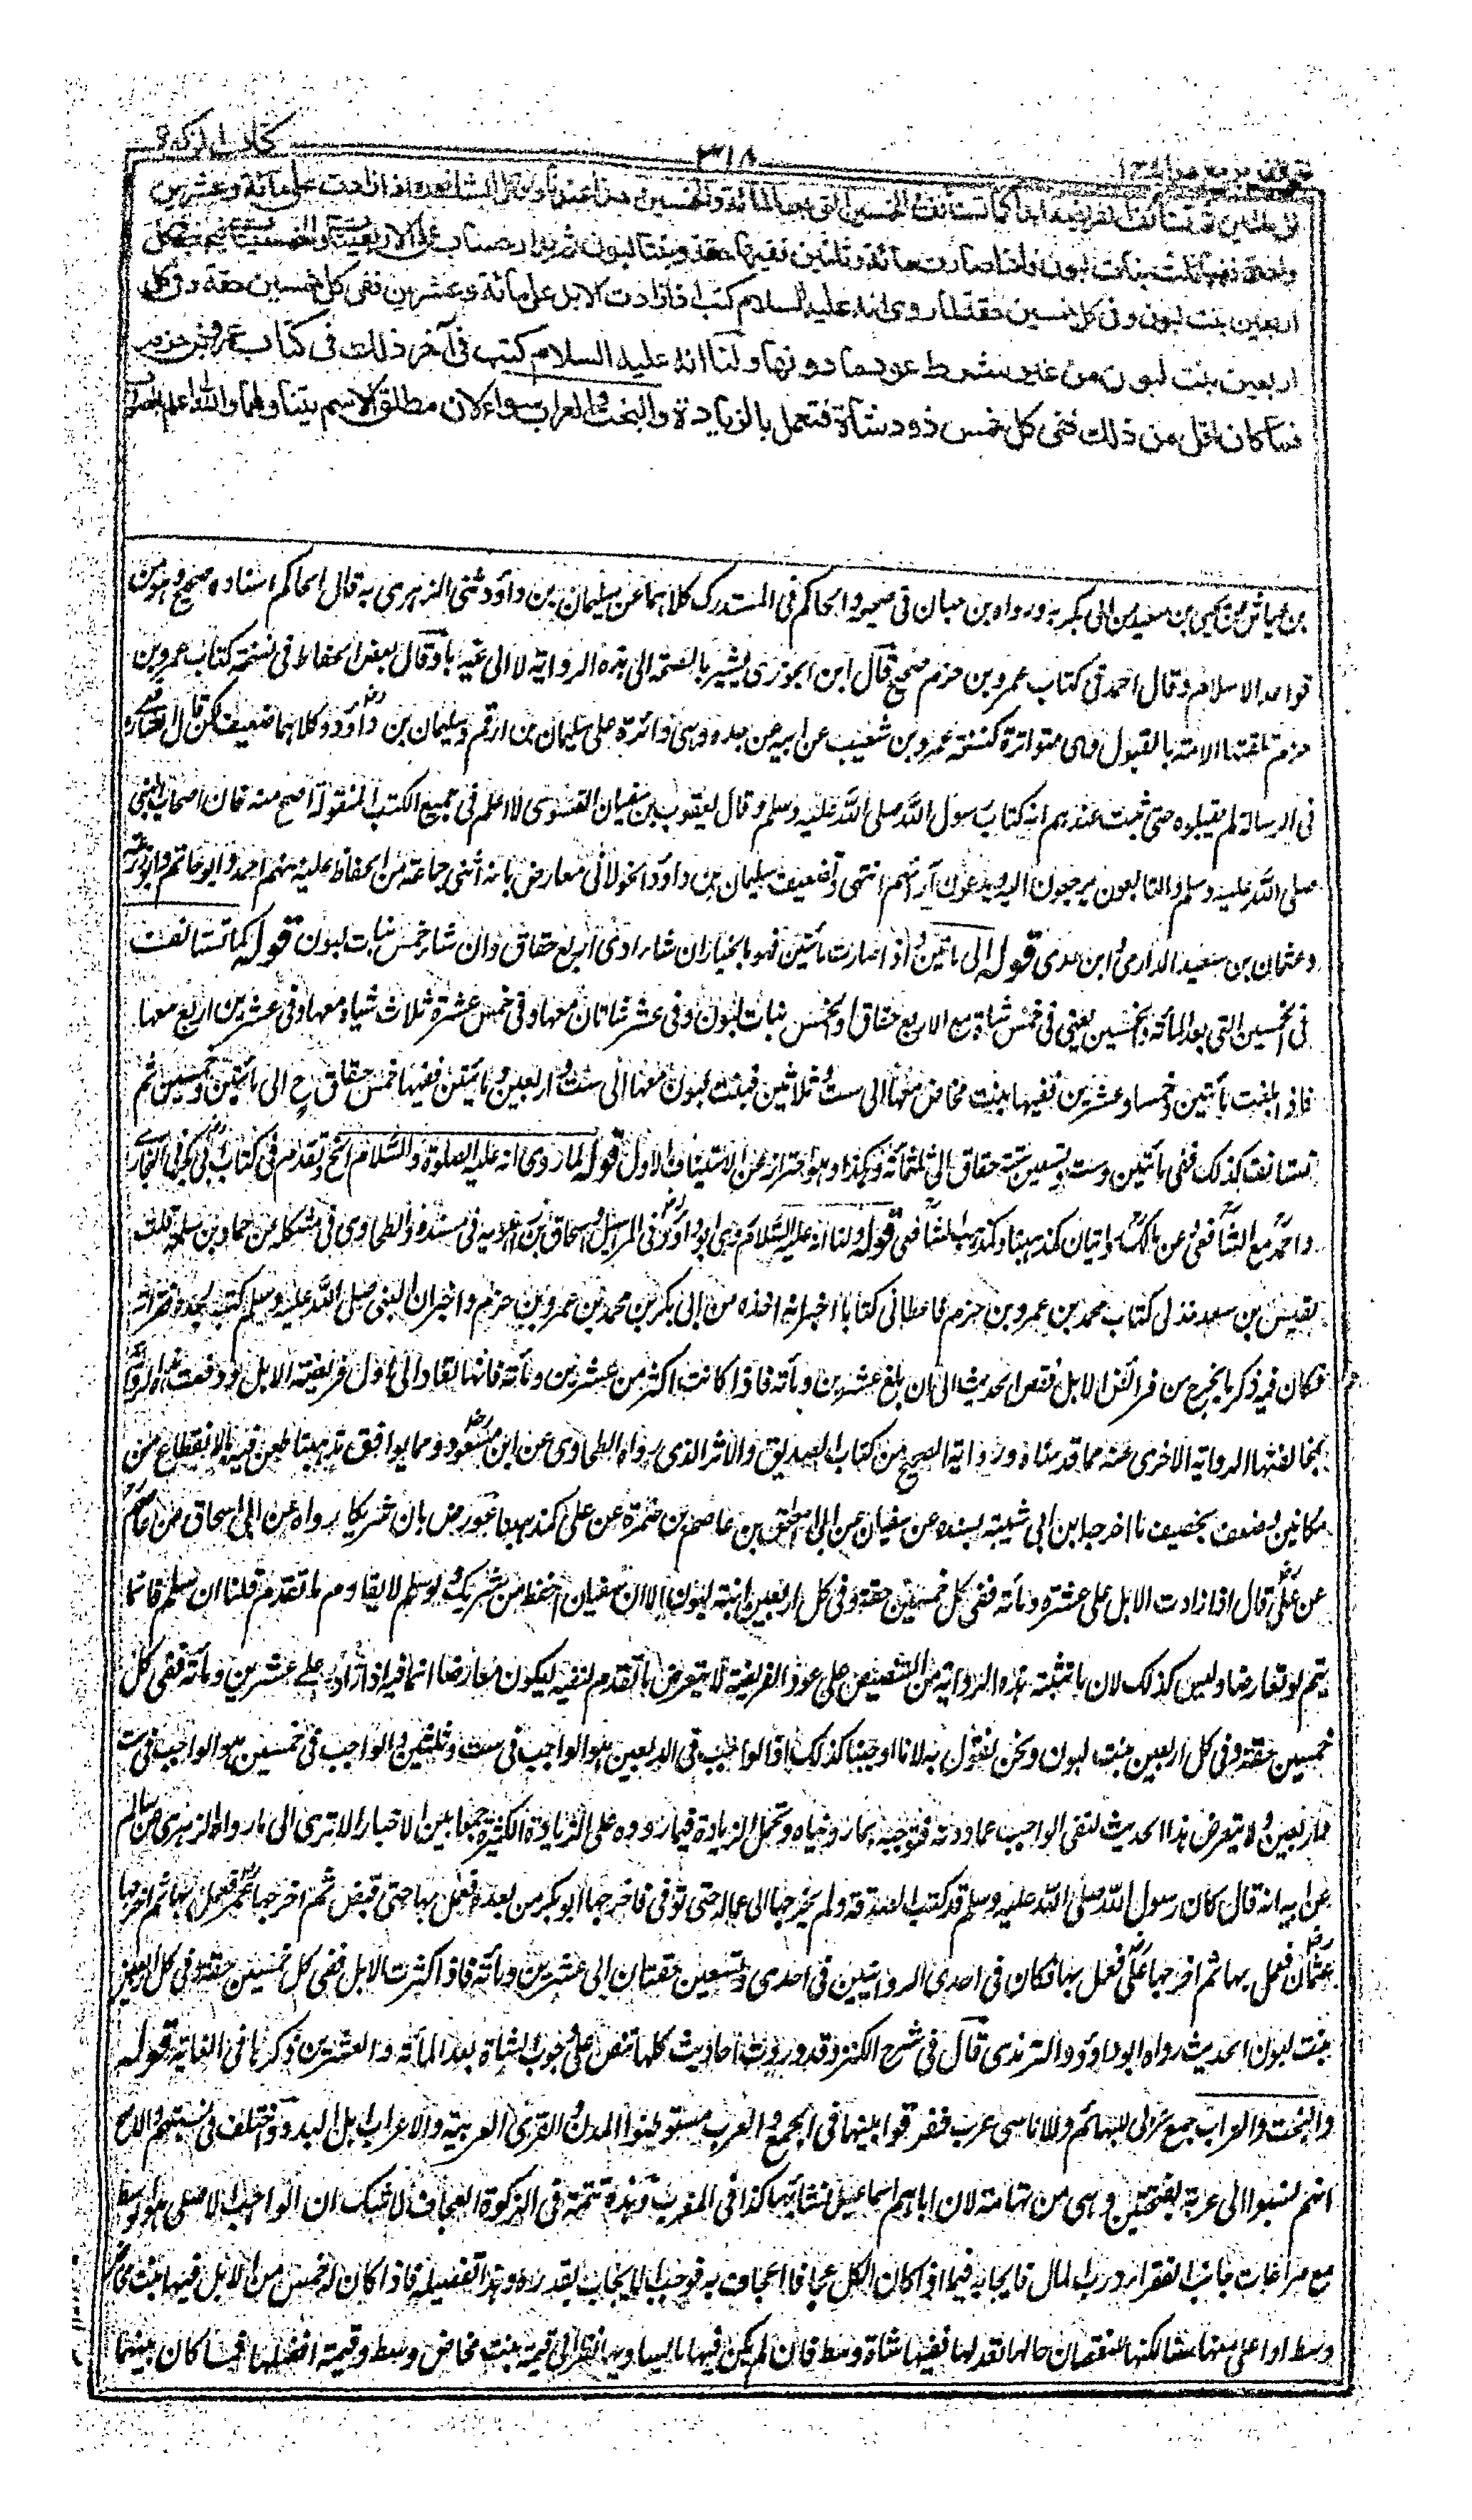 كتاب الزكوة
٣١٨
فتح القدير مع الهداية ج ١
الى مائتين ثم تستأنف الفريضة ابدا كما تستأنف في الخمسين التي بعد المائة والخمسين وهذا عندنا وقال الشافعي اذا زادت على مائة وعشرين
واحدة ففيها ثلث بنات لبون فاذا صارت مائة وثلثين ففيها حقة وبنتا لبون ثم يدار الحساب على الاربعينات والخمسينات فيجب في كل
اربعين بنت لبون وفي كل خمسين حقة لما روى انه عليه السلام كتب اذا زادت الابل على مائة وعشرين ففي كل خمسين حقة وفي كل
اربعين بنت لبون من غير شرط عود ما دونها ولنا انه عليه السلام كتب في آخر ذلك في كتاب عمرو بن حزم
فما كان اقل من ذلك ففي كل خمس ذود شاة فنعمل بالزيادة والبخت والعراب سواء لان مطلق الاسم يتناولهما والله اعلم بالصواب
بن عياش عن يحيى بن سعيد عن ابي بكر به ورواه بن حبان في صحيحه والحاكم في المستدرك كلاهما عن سليمان بن داؤد ثنى الزهرى به قال الحاكم اسناده صحيح وهو من
قواعد الاسلام وقال احمد في كتاب عمرو بن حزم صحيح قال ابن الجوزى يشير بالصحة الى هذه الرواية لا الى غيرها وقال بعض الحفاظ في نسخة كتاب عمرو بن
حزم تلقتها الامة بالقبول وهى متواترة كنسخة عمرو بن شعيب عن ابيه عن جده وهى دائرة على سليمان بن ارقم وسليمان بن داؤد وكلاهما ضعيف لكن قال الشافعي
في الرسالة لم يقبلوه حتى ثبت عندهم انه كتاب رسول الله صلى الله عليه وسلم وقال يعقوب بن سفيان الفسوى لا اعلم في جميع الكتب المنقولة اصح منه فان اصحاب النبي
صلى الله عليه وسلم والتابعون يرجعون اليه ويدعون آراءهم انتهى وتضعيف سليمان بن داؤد الخولاني معارض بانه اثنى جماعة من الحفاظ عليه منهم احمد وابو حاتم وابو زرعة
وعثمان بن سعيد الدارمى وابن عدى قوله الى مائتين واذا صارت مائتين فهو بالخيار ان شاء ادى اربع حقاق وان شاء خمس بنات لبون قوله كما تستانف
في الخمسين التي بعد المائة والخمسين يعني في خمس شاة مع الاربع حقاق او الخمس بنات لبون وفي عشر شاتان معها وفي خمس عشرة ثلاث شياه معها وفي عشرين اربع معها
فاذا بلغت مائتين وخمسا وعشرين ففيها بنت مخاض معها الى ست وثلاثين فبنت لبون معها الى ست واربعين ومائتين ففيها خمس حقاق ح الى مائتين وخمسين ثم
تستانف كذلك ففي مائتين وست وتسعين ستة حقاق الى ثلثمائة وهكذا وهو احتراز عن الاستيناف الاول قوله لما روى انه عليه الصلوة والسلام الخ وتقدم في كتاب ابي بكر في البخارى
واحمد مع الشافعي وعن مالك روايتان كمذهبنا وكمذهب الشافعي قوله ولنا انه عليه السلام روى ابو داؤد في المراسيل واسحاق بن راهويه في مسنده والطحاوى في مشكله عن حماد بن سلمة قلت
لقيس بن سعد خذ لي كتاب محمد بن عمرو بن حزم فاعطاني كتابا اخبر انه اخذه من ابي بكر بن محمد بن عمرو بن حزم واخبر ان النبي صلى الله عليه وسلم كتب لجده فقرأته
فكان فيه ذكر ما يخرج من فرائض الابل فقص الحديث الى ان بلغ عشرين ومائة فاذا كانت اكثر من عشرين ومائة فانها تعاد الى اول فريضة الابل ودفعت هذه الرواية
بمخالفتها الرواية الاخرى عنه مما قدمناه ورواية الصحيح من كتاب الصديق والاثر الذى رواه الطحاوى عن ابن مسعود ومما يوافق مذهبنا طعن فيه بالانقطاع من
مكانين وضعف بخصيف ما اخرجه ابن ابي شيبة بسنده عن سفيان عن ابي اسحاق عن عاصم بن ضمرة عن على كمذهبنا عورض بان شريكا رواه عن ابي اسحاق عن عاصم
عن على قال اذا زادت الابل على عشرة ومائة ففي كل خمسين حقة وفي كل اربعين ابنة لبون الا ان سفيان احفظ من شريك ولو سلم لا يقاوم ما تقدم قلنا ان سلم فانما
يتم لو تعارضا وليس كذلك لان ما تثبته هذه الرواية من التنصيص على عود الفريضة لا يتعرض ما تقدم لنفيه ليكون معارضا انما فيه اذا زادت على عشرين ومائة ففي كل
خمسين حقة وفي كل اربعين بنت لبون ونحن نقول به لانا اوجبنا كذلك اذ الواجب في الاربعين هو الواجب في ست وثلثين والواجب في خمسين هو الواجب في ست
واربعين ولا يتعرض هذا الحديث لنفى الواجب عما دونه فنوجبه بما رويناه ونحمل الزيادة فيما رووه على الزيادة الكثيرة جمعا بين الاخبار الا ترى الى ما رواه الزهرى عن سالم
عن ابيه انه قال كان رسول الله صلى الله عليه وسلم قد كتب الصدقة ولم يخرجها الى عماله حتى توفى فاخرجها ابو بكر من بعده فعمل بها حتى قبض ثم اخرجها عمر فعمل بها ثم اخرجها
عثمان فعمل بها ثم اخرجها على فعمل بها فكان في احدى الروايتين في احدى وتسعين حقتان الى عشرين ومائة فاذا كثرت الابل ففي كل خمسين حقة وفي كل اربعين
بنت لبون الحديث رواه ابو داؤد والترمذى قال في شرح الكنز وقد وردت احاديث كلها تنص على وجوب الشاة بعد المائة والعشرين ذكرها في الغاية قوله
والبخت والعراب جمع عربى للبهائم وللاناسى عرب ففرقوا بينهما في الجمع والعرب مستوطنوا المدن والقرى العربية والاعراب اهل البدو واختلف في نسبتهم والاصح
انهم نسبوا الى عربة بفتحتين وهى من تهامة لان اباهم اسماعيل نشأ بها كذا في المغرب وهذه تتمة في الزكوة العجاف لا شك ان الواجب الاصلى هو الوسط
مع مراعات جانب الفقراء ورب المال فايجابه فيما اذا كان الكل عجافا اجحاف به فوجب الايجاب بقدره وهذا تفصيله فاذا كان له خمس من الابل فيها بنت مخاض
وسط او اعلى منها سنا لكنها لنقصان حالها تعدلها ففيها شاة وسط فان لم يكن فيها ما يساويها نظر الى قيمة بنت مخاض وسط وقيمة افضلها فما كان بينهما